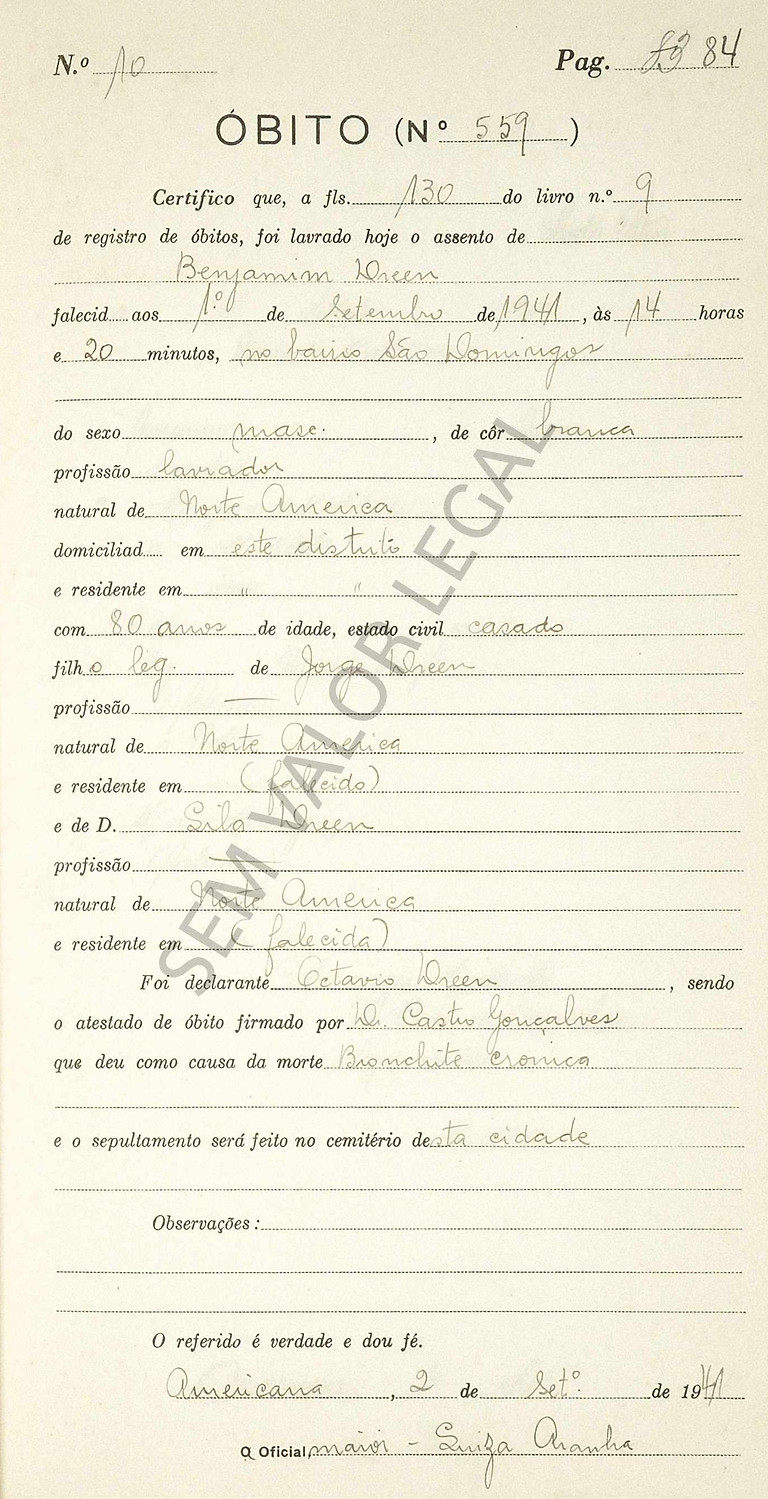 N.º 10 Pag. 84
ÓBITO (Nº 559)
Certifico que, a fls. 130 do livro n.º 9
de registro de óbitos, foi lavrado hoje o assento de
Benjamim Dreen
falecid aos 1.º de Setembro de 1941, às 14 horas
e 20 minutos, no bairro São Domingos
do sexo masc. , de côr branca
profissão lavrador
natural de Norte America
domiciliad em este distrito
e residente em " "
com 80 anos de idade, estado civil casado
filho leg. de Jorge Dreen
profissão —
natural de Norte America
e residente em (falecido)
e de D. Dreen
profissão —
natural de Norte America
e residente em (falecida)
Foi declarante Octavio Dreen , sendo
o atestado de óbito firmado por Dr. Castro Gonçalves
que deu como causa da morte Bronchite cronica
e o sepultamento será feito no cemitério desta cidade
Observações :
O referido é verdade e dou fé.
Americana , 2 de Setº. de 1941
O Oficial maior - Luiza Aranha
SEM VALOR LEGAL